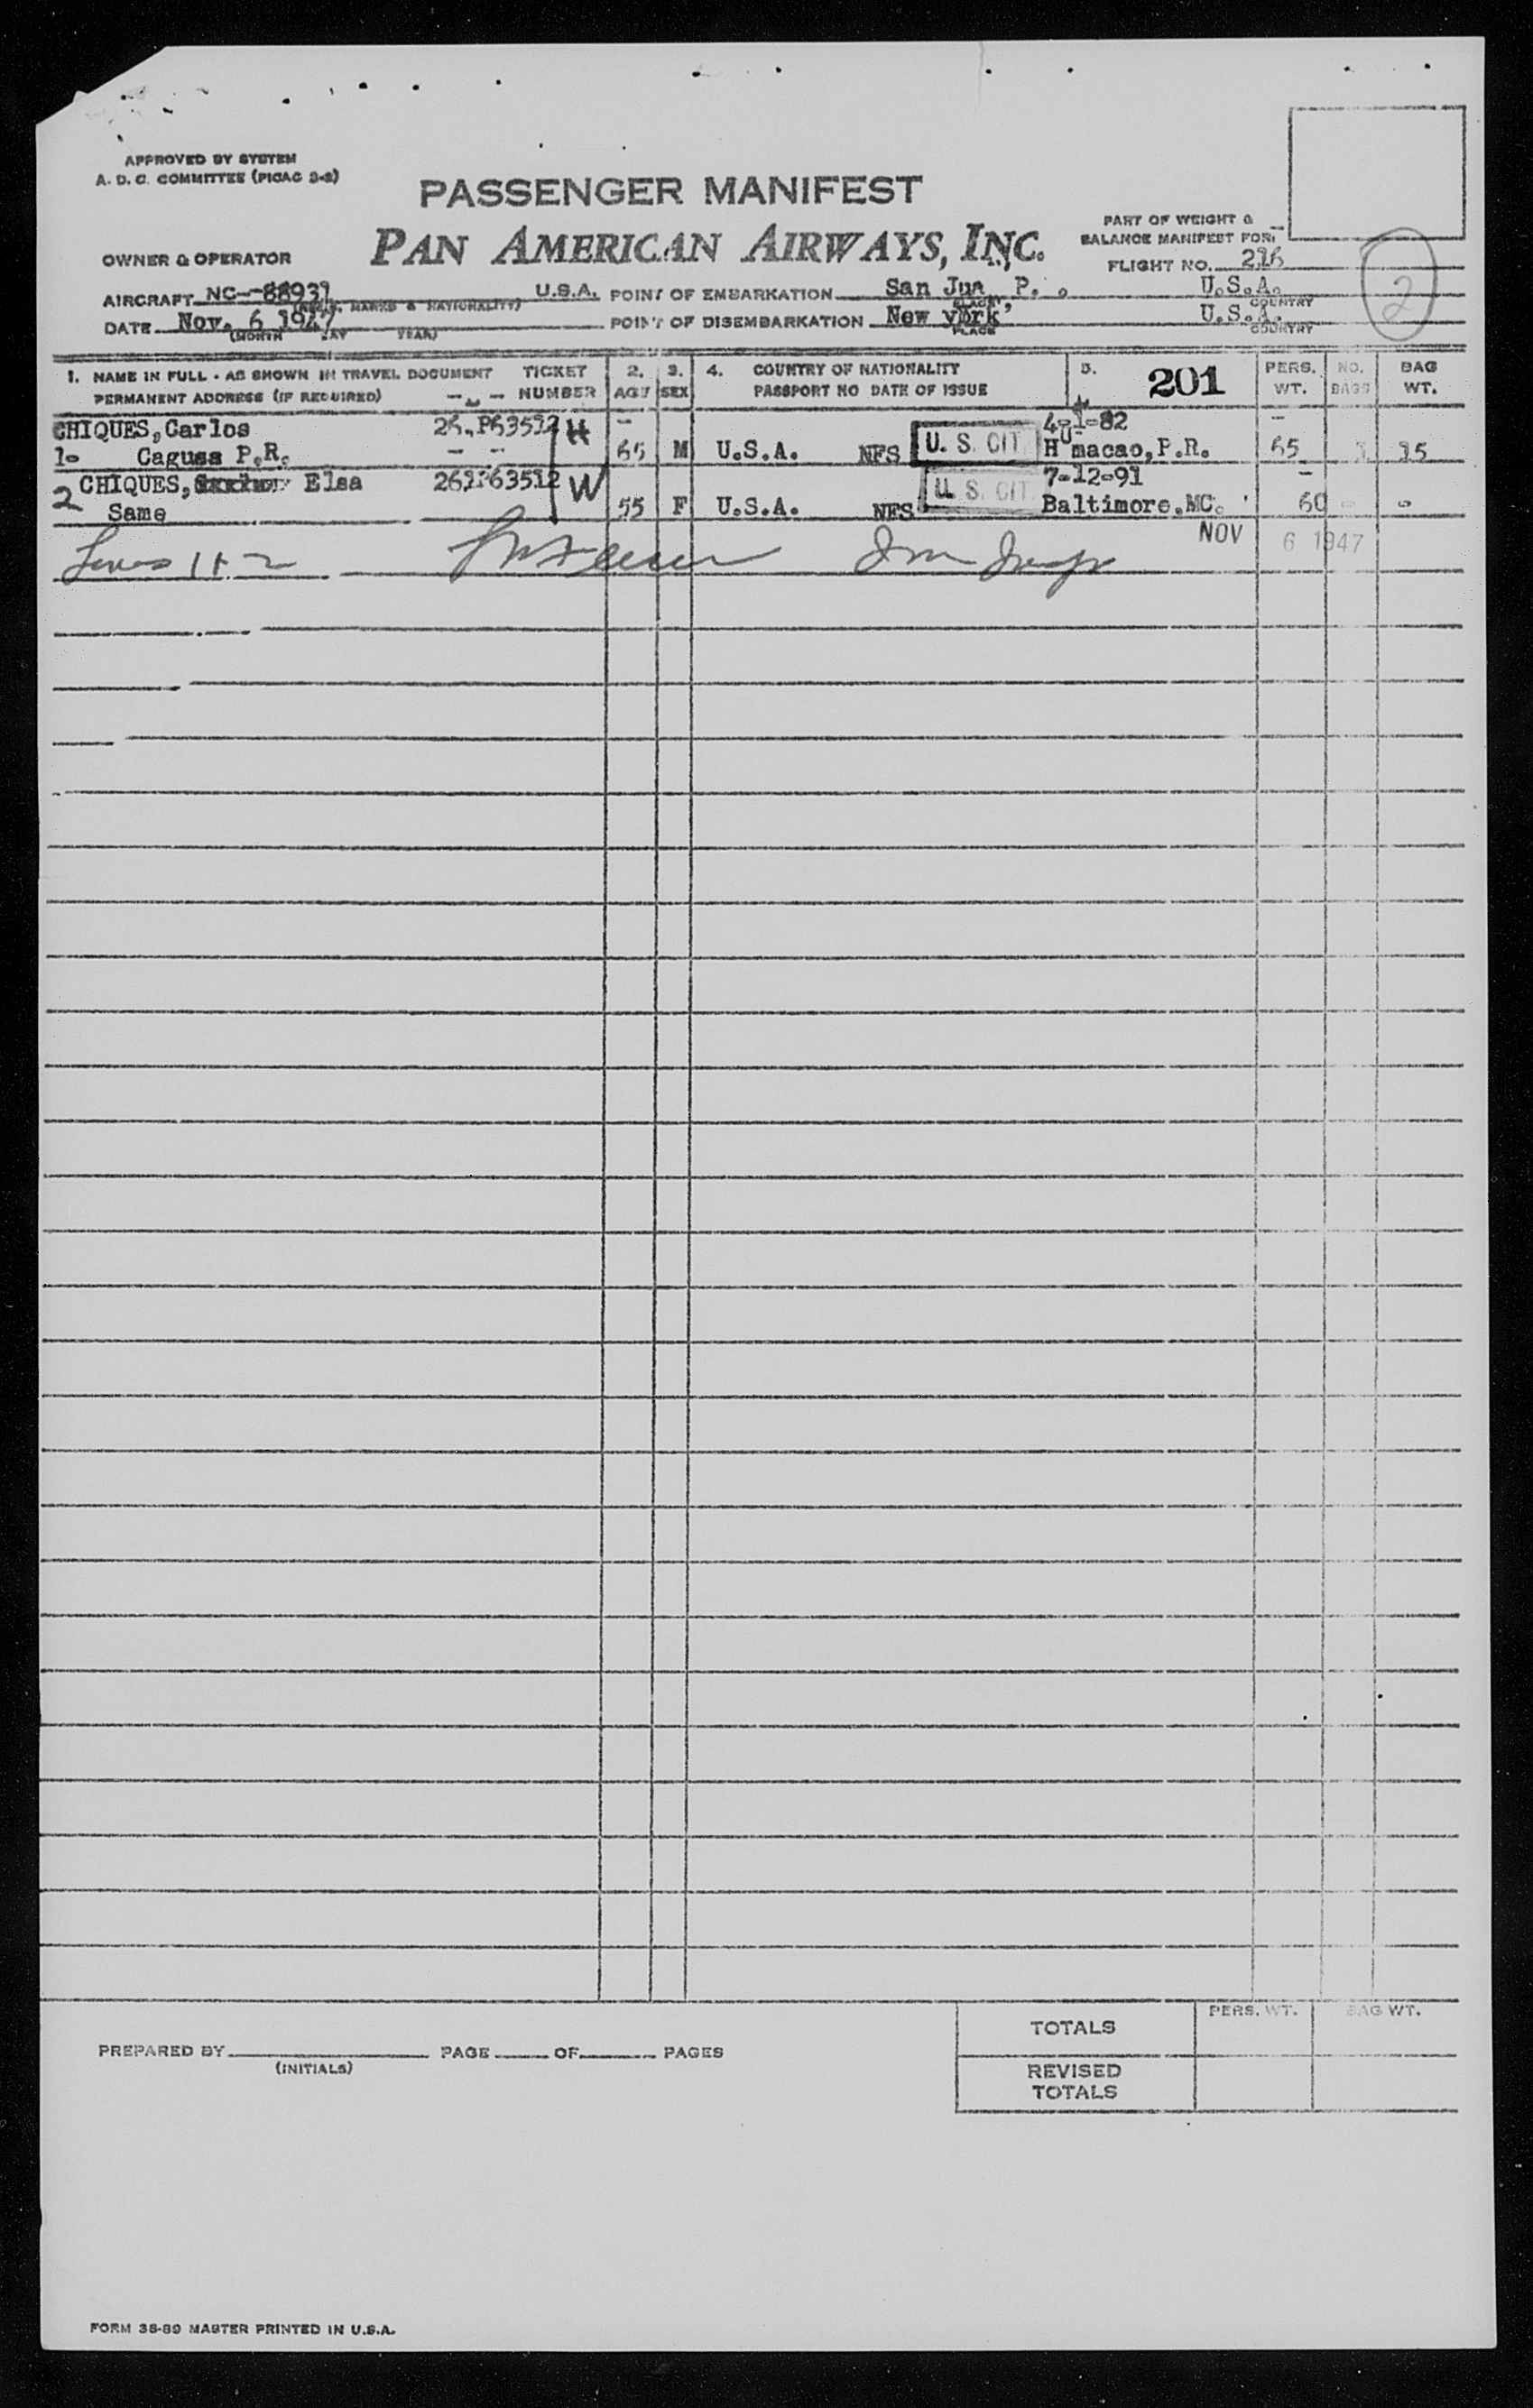 APPROVED BY SYSTEM
A. D. C. COMMITTEE (PICAO 3-2)
PASSENGER MANIFEST
PAN AMERICAN AIRWAYS, INC.
PART OF WEIGHT &
BALANCE MANIFEST FOR:
OWNER & OPERATOR
FLIGHT NO. 216
2
AIRCRAFT NC--88939 U.S.A. POINT OF EMBARKATION San Jua , P. . U.S.A.
MARKS & NATIONALITY) PLACE COUNTRY
DATE Nov. 6 1947 POINT OF DISEMBARKATION New york, U.S.A.
(MONTH DAY YEAR) PLACE COUNTRY
1. NAME IN FULL - AS SHOWN IN TRAVEL DOCUMENT TICKET 2. 3. 4. COUNTRY OF NATIONALITY 5. 201 PERS. NO. BAG
PERMANENT ADDRESS (IF REQUIRED) NUMBER AGE SEX PASSPORT NO DATE OF ISSUE WT. BAGS WT.
CHIQUES, Carlos H 4-1-82
1- Caguas P.R. 65 M U.S.A. NFS U. S. CIT. Humacao, P.R. 65 1 15
CHIQUES, Elsa 261P63512 W 7-12-91
2 Same 55 F U.S.A. NFS U. S. CIT Baltimore.MC. 60 - -
Lines 1 + 2 NOV 6 1947
PREPARED BY PAGE OF PAGES
(INITIALS)
TOTALS PERS. WT. BAG WT.
REVISED
TOTALS
FORM 38-89 MASTER PRINTED IN U.S.A.